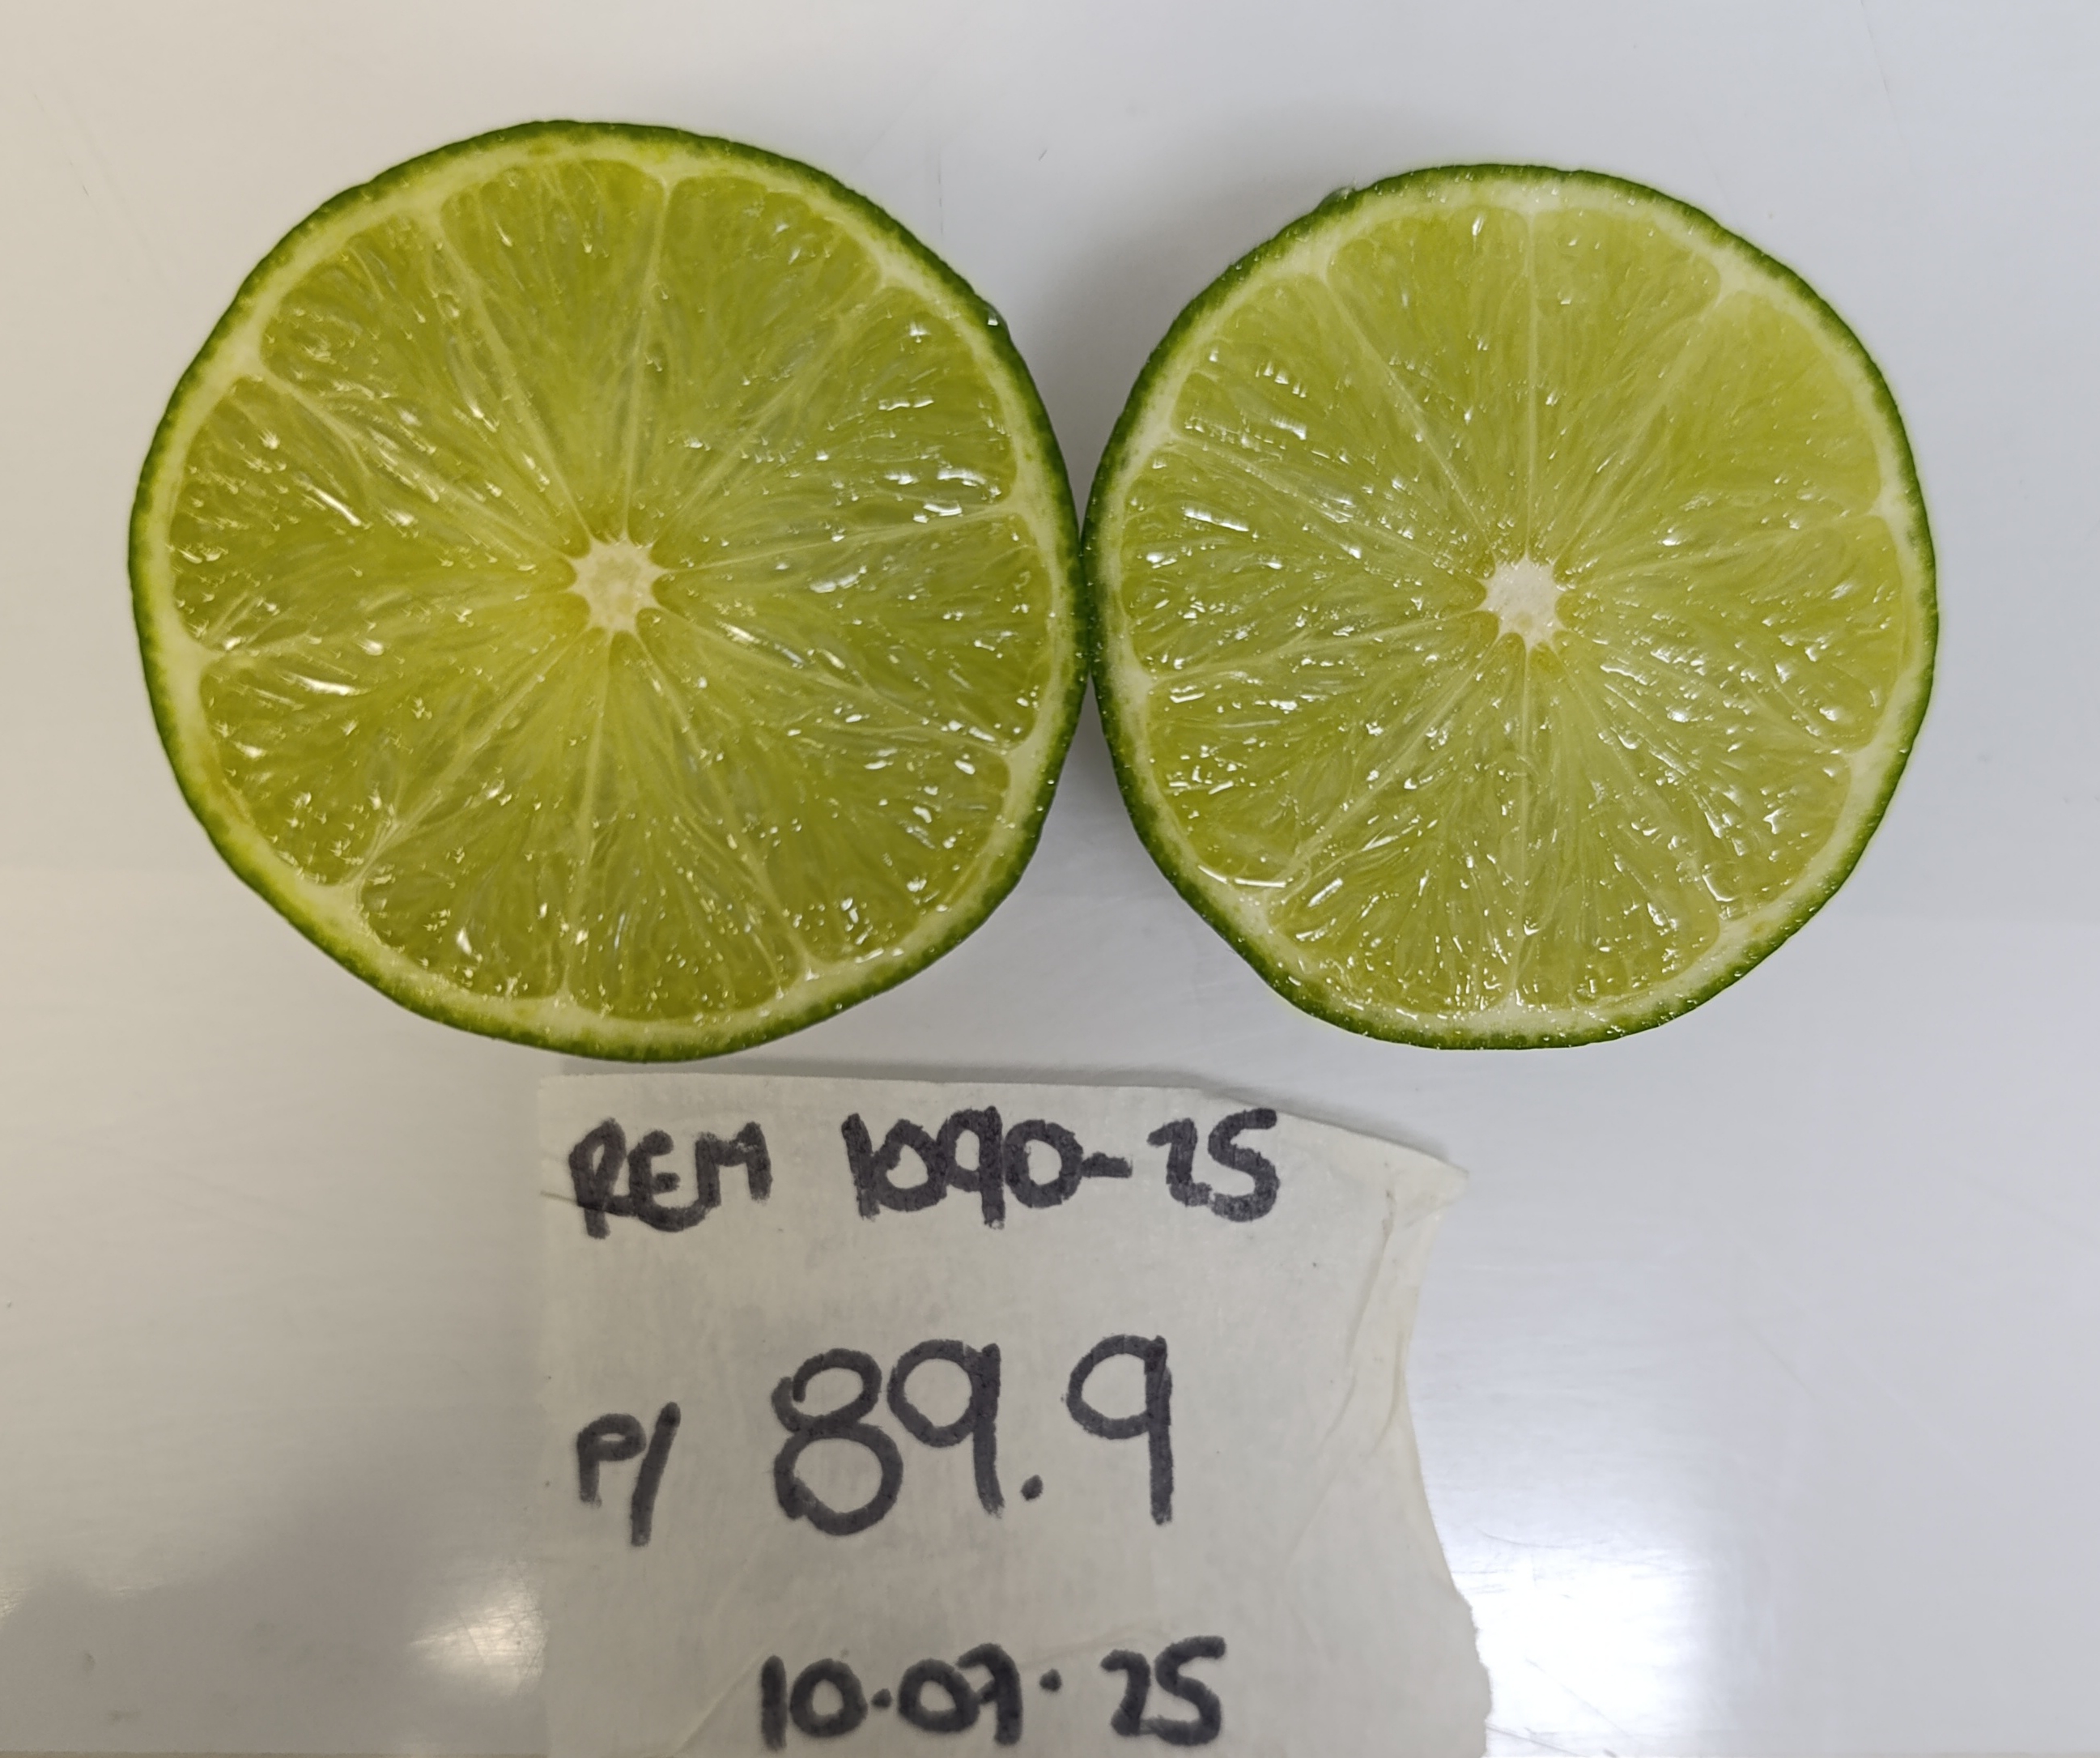 REM 1090-25
P/ 89.9
10.07.25